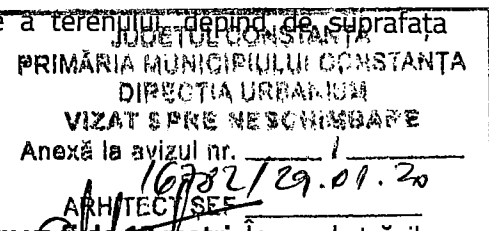 e a terenului, depind de suprafața
JUDEȚUL CONSTANȚA
PRIMĂRIA MUNICIPIULUI CONSTANȚA
DIRECȚIA URBANISM
VIZAT SPRE NESCHIMBARE
Anexă la avizul nr. 1
16782/29.01.20
ARHITECT ȘEF